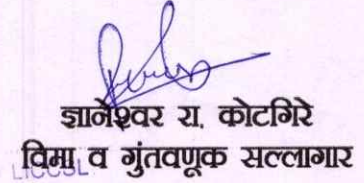 ज्ञानेश्वर रा. कोटगिरे
विमा व गुंतवणूक सल्लागार